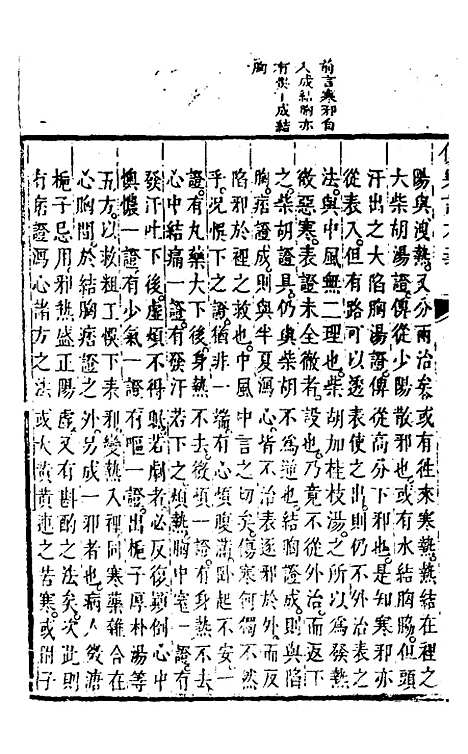 前言寒邪自
人成結胸亦
有 成結
胸
陽與洩熱又分兩治矣或有往來寒熱熱結在裡之
大柴胡湯證傳從少陽散邪也或有水結胸脇但頭
汗出之大陷胸湯證傳從高分下邪也是知寒邪亦
從表入但有路可以 表使之出則仍不外 表之
法與中風無二理也柴胡加桂枝湯之所以為發熱
微惡寒表證未全微者設也乃竟不從外治而返下
之柴胡證具仍與柴胡不為逆也結胸證成則與陷
胸痞證成則與半夏瀉 表逐邪於外而與
陷邪於裡之救也中風中言之切矣傷寒何獨不然
乎況悞下之證猶非一端有心煩腹滿臥起不安一
證有丸藥大下後身熱不去微煩一證有身熱不去
心中結痛一證有發汗若下之煩熱胸中窒一證有
發汗吐下後虛煩不得眠若劇者必反復顛倒心中
懊憹一證有少氣一證有嘔一證出梔子厚朴湯等
五方以救粗工悞下來邪變熱入裡同寒藥雜合在
心胸間於結胸痞證之外另成一邪者也病人微溏
梔子忌用邪熱盛正陽虛又有斟酌之法矣次此則
有痞證瀉心諸方之法或大黃黃連之苦寒或附子